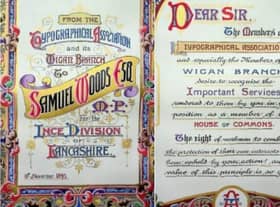 FROM THE
Typographical Association
and its
WIGAN BRANCH
To
SAMUEL WOODS ESQ.
M.P.
For the
INCE DIVISION
OF
LANCASHIRE.
DEAR SIR,
The Members of
TYPOGRAPHICAL ASSOCIATION
and especially the Members of
WIGAN BRANCH
desire to recognise the
Important Services
rendered to them by you
position as a member of
HOUSE OF COMMONS.
The right of workmen to
the protection of their own interests
been upheld by you,
value of this principle is